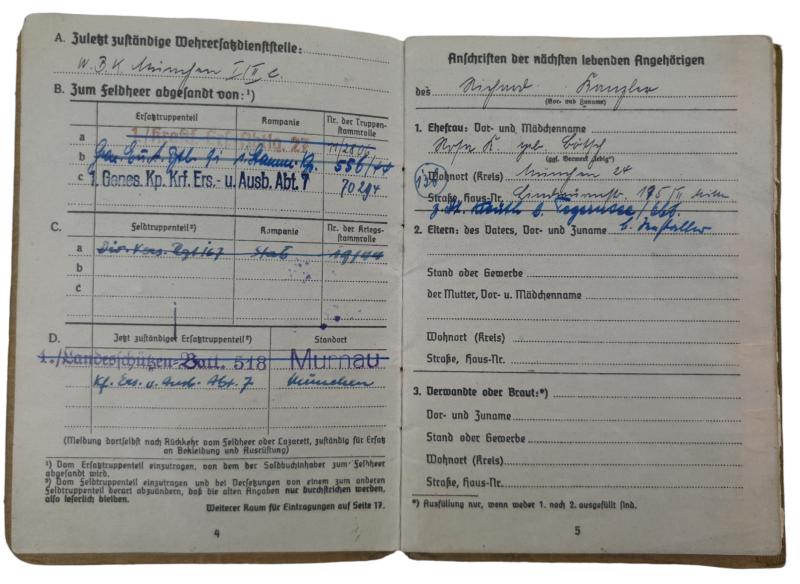 A. Zuletzt zuständige Wehrersatzdienststelle:
W.B.K. München I/II c.
B. Zum Feldheer abgesandt von:¹)
Ersatztruppenteil
Kompanie
Nr. der Truppenstammrolle
a
b 556/44
c 1. Genes. Kp. Krf. Ers.- u. Ausb. Abt. 7 70294
C. Feldtruppenteil²)
Kompanie
Nr. der Kriegsstammrolle
a Stab 19/44
b
c
D. Jetzt zuständiger Ersatztruppenteil²)
Standort
1./Landesschützen-Batt. 518 Murnau
Kf. Ers. u. Ausb. Abt. 7 München
(Meldung dortselbst nach Rückkehr vom Feldheer oder Lazarett, zuständig für Ersatz
an Bekleidung und Ausrüstung)
¹) Vom Ersatztruppenteil einzutragen, von dem der Soldbuchinhaber zum Feldheer
abgesandt wird.
²) Vom Feldtruppenteil einzutragen und bei Versetzungen von einem zum anderen
Feldtruppenteil derart abzuändern, daß die alten Angaben nur durchstrichen werden,
also leserlich bleiben.
Weiterer Raum für Eintragungen auf Seite 17.
4
Anschriften der nächsten lebenden Angehörigen
des Richard Kanzler
(Vor- und Zuname)
1. Ehefrau: Vor- und Mädchenname
Rosa K. geb.
(ggf. Vermerk „ledig")
Wohnort (Kreis) München 24
Straße, Haus-Nr. 195/II
2. Eltern: des Vaters, Vor- und Zuname
Stand oder Gewerbe
der Mutter, Vor- u. Mädchenname
Wohnort (Kreis)
Straße, Haus-Nr.
3. Verwandte oder Braut:*)
Vor- und Zuname
Stand oder Gewerbe
Wohnort (Kreis)
Straße, Haus-Nr.
*) Ausfüllung nur, wenn weder 1. noch 2. ausgefüllt sind.
5